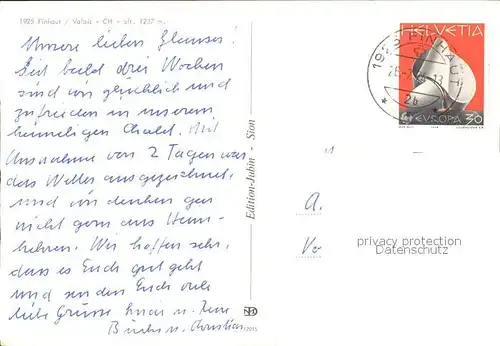 1925 Finhaut / Valais - CH - alt. 1237 m.
Unsere lieben
Seit bald drei Wochen
sind wir glücklich und
zufrieden in unserem
heimeligen Chalet. Mit
Ausnahme von 2 Tagen war
das Wetter ausgezeichnet
und wir denken gar
nicht gern ans Heim-
kehren. Wir hoffen sehr,
dass es Euch gut geht
und senden Euch viele
liebe Grüsse
u. Christian
Edition-Jubin - Sion
HELVETIA
1925 FINHAUT
EUROPA 30
A.
Ve
privacy protection
Datenschutz